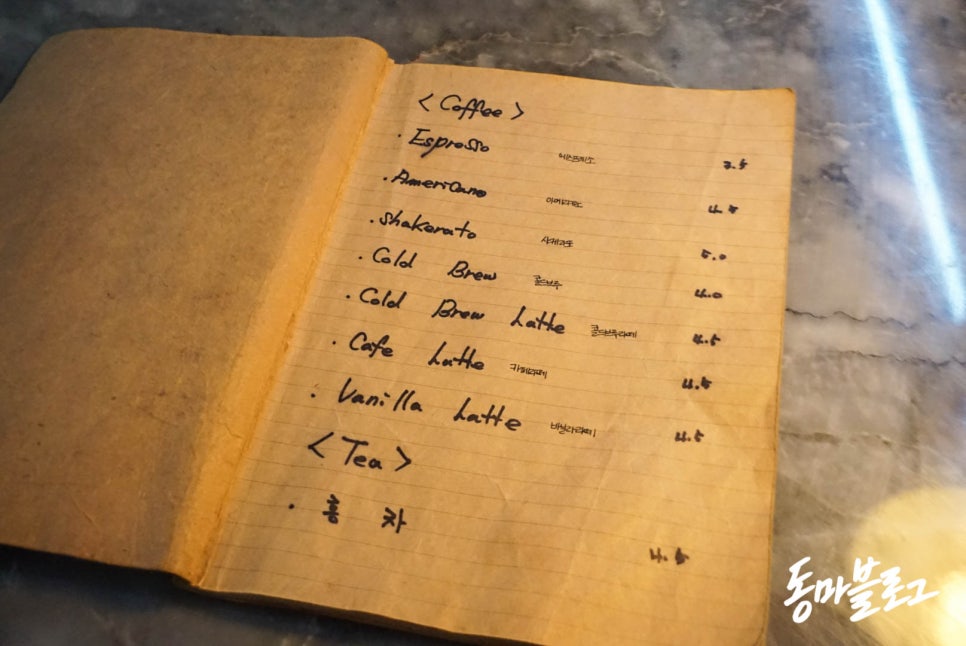 < Coffee >
· Espresso 에스프레소 3.5
· Americano 아메리카노 4.5
· Shakerato 샤케라또 5.0
· Cold Brew 콜드브루 4.0
· Cold Brew Latte 콜드브루라떼 4.5
· Cafe Latte 카페라떼 4.5
· Vanilla Latte 바닐라라떼 4.5
< Tea >
· 홍차 4.5
동마블로그